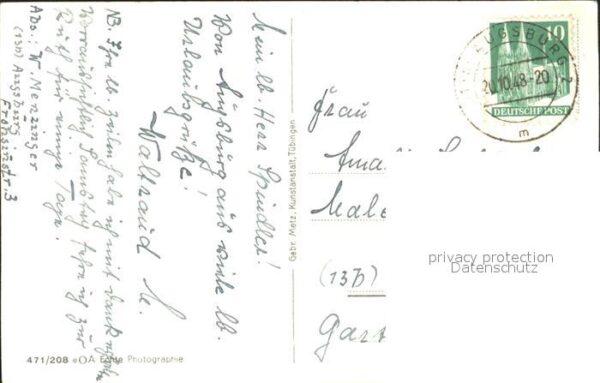 Mein lb. Herr Spindler!
Von Augsburg aus viele lb.
Urlaubsgrüße!
Waltraud M.
NB. Ihre lb. Zeilen habe ich mit Dank
Voraussichtlich Samstag fahre ich zur
für einige Tage.
Abs.: W. Menzinger
(13b) Augsburg
471/208 eOA Echte Photographie
Gebr. Metz, Kunstanstalt, Tübingen
AUGSBURG 2
20.10.48-20
m
10
DEUTSCHE POST
Frau
Ama
Male
(13b)
Gar
privacy protection
Datenschutz